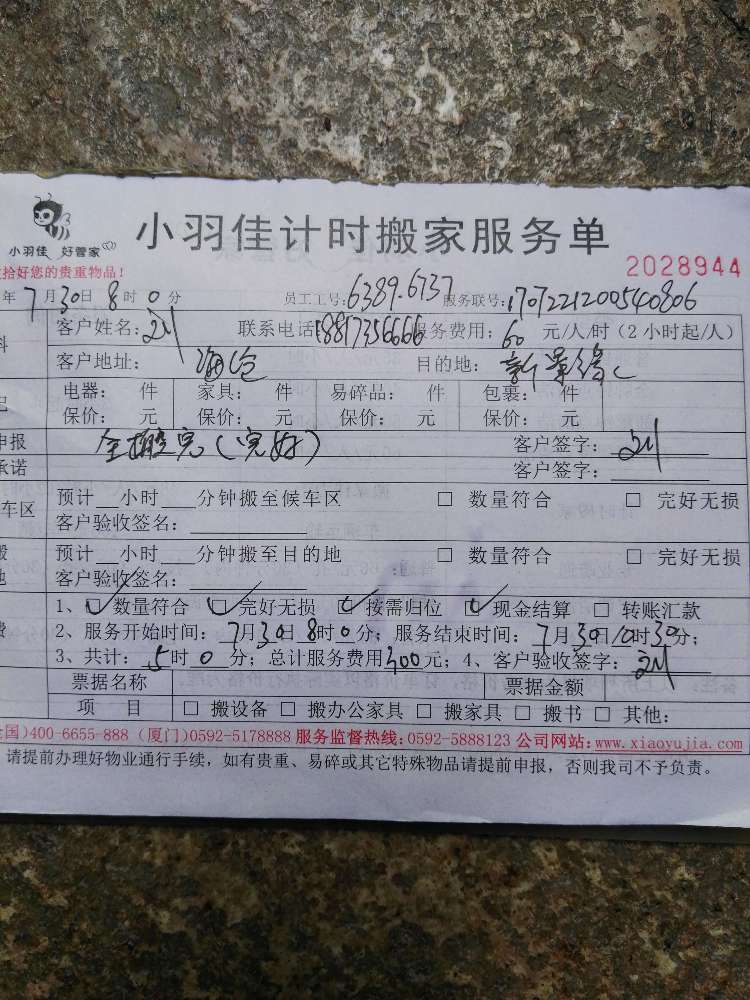 小羽佳 好管家
小羽佳计时搬家服务单
2028944
拾好您的贵重物品！
年7月30日8时0分 员工工号:6389.6737 服务联号:1707221200540806
客户姓名: 联系电话18817356666服务费用: 60 元/人/时（2小时起/人）
客户地址: 海沧 目的地: 新景缘C
电器: 件 家具: 件 易碎品: 件 包裹: 件
保价: 元 保价: 元 保价: 元 保价: 元
申报 全搬完（完好） 客户签字:
承诺 客户签字:
车区 预计__小时___分钟搬至候车区 □ 数量符合 □ 完好无损
客户验收签名:
预计__小时___分钟搬至目的地 □ 数量符合 □ 完好无损
客户验收签名:
1、☑数量符合 ☑完好无损 ☑按需归位 ☑现金结算 □ 转账汇款
2、服务开始时间: 7月30日8时0分; 服务结束时间: 7月30日10时30分;
3、共计: 5时0分; 总计服务费用300元; 4、客户验收签字:
票据名称 票据金额
项 目 □ 搬设备 □ 搬办公家具 □ 搬家具 □ 搬书 □ 其他:
国)400-6655-888 (厦门)0592-5178888 服务监督热线:0592-5888123 公司网站:www.xiaoyujia.com
请提前办理好物业通行手续，如有贵重、易碎或其它特殊物品请提前申报，否则我司不予负责。